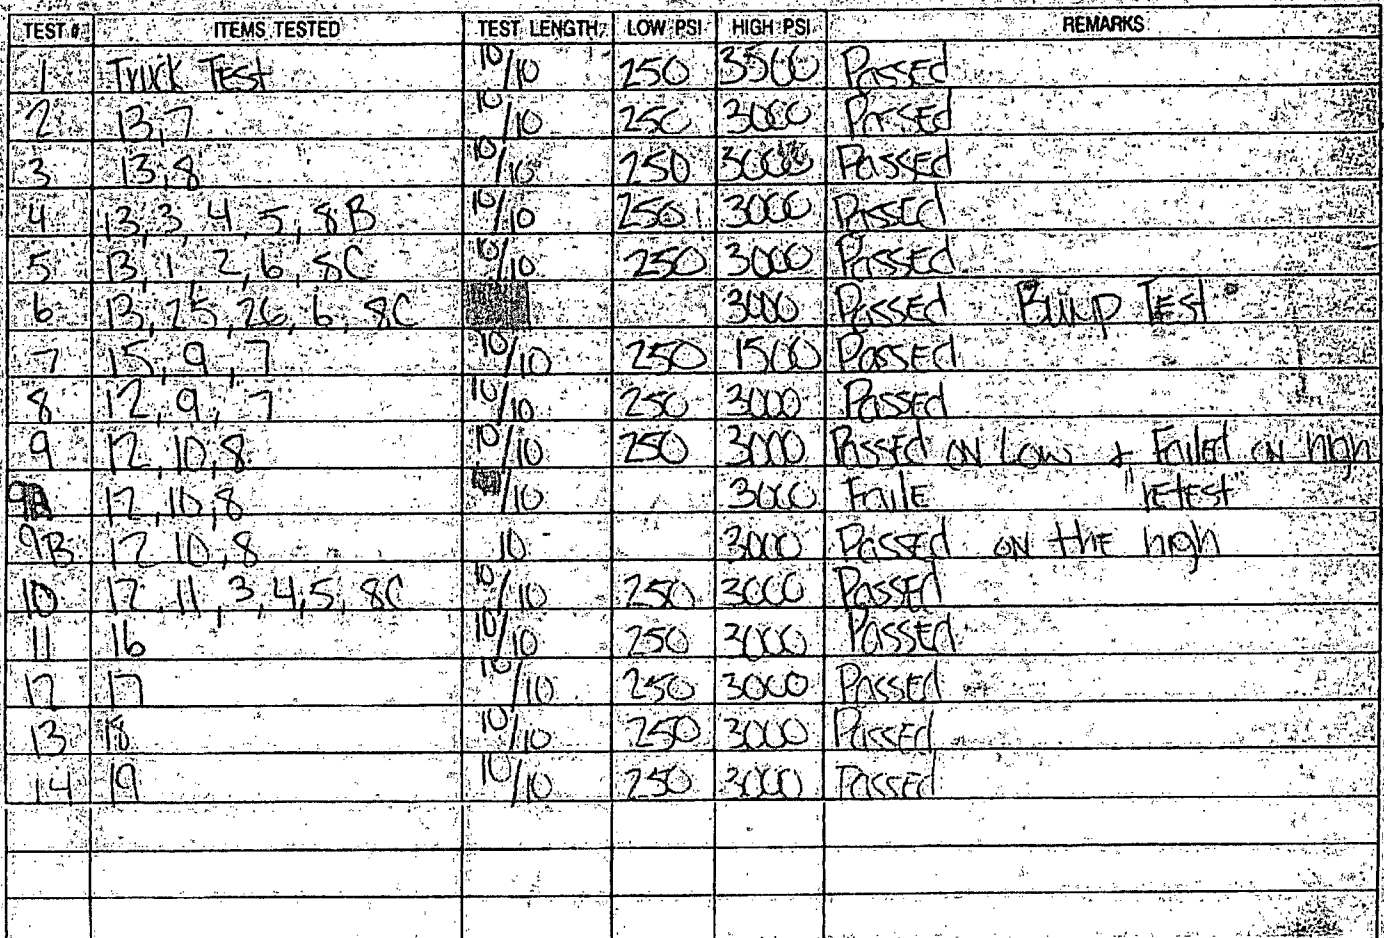 TEST # ITEMS TESTED TEST LENGTH LOW PSI HIGH PSI REMARKS
1 Truck Test 10/10 250 3500 Passed
2 13,7 10/10 250 3000 Passed
3 13,8 10/10 250 3000 Passed
4 13,3,4,5,8B 10/10 250 3000 Passed
5 13,1,2,6,8C 10/10 250 3000 Passed
6 13,25,26,6,8C 3000 Passed Bump Test
7 15,9,7 10/10 250 1500 Passed
8 12,9,7 10/10 250 3000 Passed
9 12,10,8 10/10 250 3000 Passed on Low + Failed on high
9A 12,10,8 /10 3000 Faile "retest"
9B 12,10,8 10 3000 Passed on the high
10 12,11,3,4,5,8C 10/10 250 3000 Passed
11 16 10/10 250 3000 Passed
12 17 10/10 250 3000 Passed
13 18 10/10 250 3000 Passed
14 19 10/10 250 3000 Passed